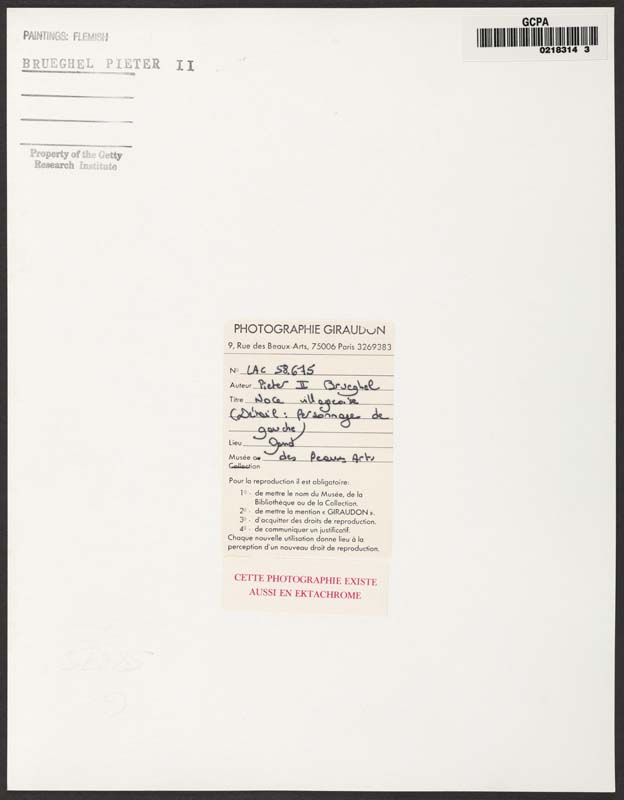 PAINTINGS: FLEMISH
BRUEGHEL PIETER II
Property of the Getty
Research Institute
GCPA
0218314 3
PHOTOGRAPHIE GIRAUDON
9, Rue des Beaux-Arts, 75006 Paris 3269383
N° LAC 58.675
Auteur Pieter II Brueghel
Titre Noce villageoise
(Détail: Personnages de
gauche)
Lieu Gand
Musée ou des Beaux Arts
Collection
Pour la reproduction il est obligatoire:
1° - de mettre le nom du Musée, de la
Bibliothèque ou de la Collection.
2° - de mettre la mention « GIRAUDON ».
3° - d'acquitter des droits de reproduction.
4° - de communiquer un justificatif.
Chaque nouvelle utilisation donne lieu à la
perception d'un nouveau droit de reproduction.
CETTE PHOTOGRAPHIE EXISTE
AUSSI EN EKTACHROME